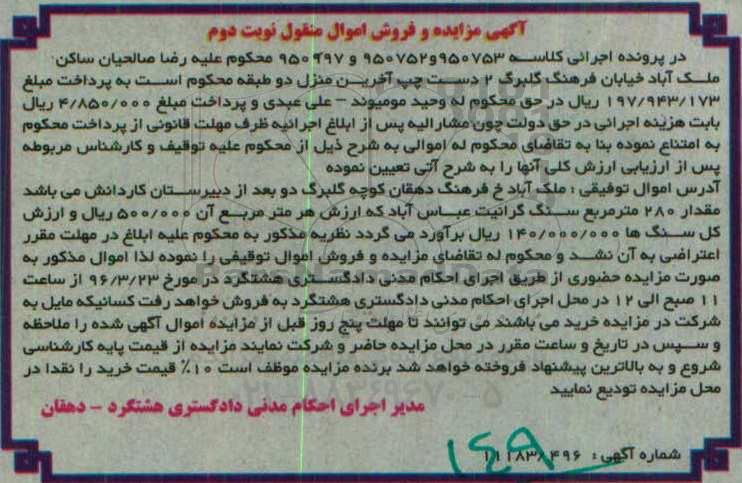 آگهی مزایده و فروش اموال منقول نوبت دوم
در پرونده اجرائی کلاسه ۹۵۰۷۵۳و۹۵۰۷۵۲ و ۹۵۰۹۹۷ محکوم علیه رضا صالحیان ساکن
ملک آباد خیابان فرهنگ گلبرگ ۲ دست چپ آخرین منزل دو طبقه محکوم است به پرداخت مبلغ
۱۹۷/۹۴۳/۱۷۳ ریال در حق محکوم له وحید مومیوند – علی عبدی و پرداخت مبلغ ۴/۸۵۰/۰۰۰ ریال
بابت هزینه اجرائی در حق دولت چون مشارالیه پس از ابلاغ اجرائیه ظرف مهلت قانونی از پرداخت محکوم
به امتناع نموده بنا به تقاضای محکوم له اموالی به شرح ذیل از محکوم علیه توقیف و کارشناس مربوطه
پس از ارزیابی ارزش کلی آنها را به شرح آتی تعیین نموده
آدرس اموال توقیفی : ملک آباد خ فرهنگ دهقان کوچه گلبرگ دو بعد از دبیرستان کاردانش می باشد
مقدار ۲۸۰ مترمربع سنگ گرانیت عباس آباد که ارزش هر متر مربع آن ۵۰۰/۰۰۰ ریال و ارزش
کل سنگ ها ۱۴۰/۰۰۰/۰۰۰ ریال برآورد می گردد نظریه مذکور به محکوم علیه ابلاغ در مهلت مقرر
اعتراضی به آن نشد و محکوم له تقاضای مزایده و فروش اموال توقیفی را نموده لذا اموال مذکور به
صورت مزایده حضوری از طریق اجرای احکام مدنی دادگستری هشتگرد در مورخ ۹۶/۳/۲۳ از ساعت
۱۱ صبح الی ۱۲ در محل اجرای احکام مدنی دادگستری هشتگرد به فروش خواهد رفت کسانیکه مایل به
شرکت در مزایده خرید می باشند می توانند تا مهلت پنج روز قبل از مزایده اموال آگهی شده را ملاحظه
و سپس در تاریخ و ساعت مقرر در محل مزایده حاضر و شرکت نمایند مزایده از قیمت پایه کارشناسی
شروع و به بالاترین پیشنهاد فروخته خواهد شد برنده مزایده موظف است ۱۰٪ قیمت خرید را نقدا در
محل مزایده تودیع نمایید
مدیر اجرای احکام مدنی دادگستری هشتگرد – دهقان
شماره آگهی : ۱۱۱۸۳/۴۹۶
۱۴۹